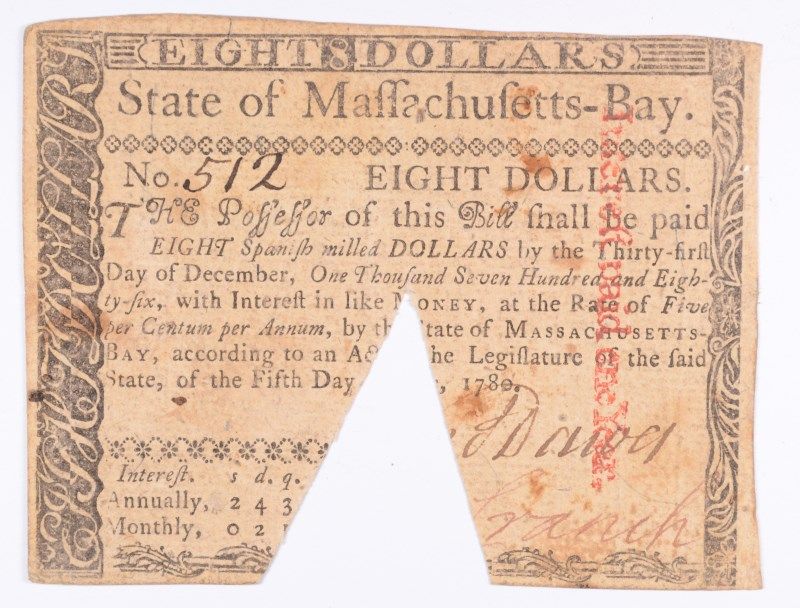 EIGHT 8 DOLLARS
State of Maſſachuſetts-Bay.
No. 512 EIGHT DOLLARS.
THE Poſſeſſor of this Bill ſhall be paid
EIGHT Spaniſh milled DOLLARS by the Thirty-firſt
Day of December, One Thouſand Seven Hundred and Eigh-
ty-ſix, with Intereſt in like MONEY, at the Rate of Five
per Centum per Annum, by the State of MASSACHUSETTS-
BAY, according to an A he Legiſlature of the ſaid
State, of the Fifth Day , 1780.
Dawes
Cranch
Intereſt. s d. q.
Annually, 2 4 3
Monthly, 0 2
Intereſt paid one Year.